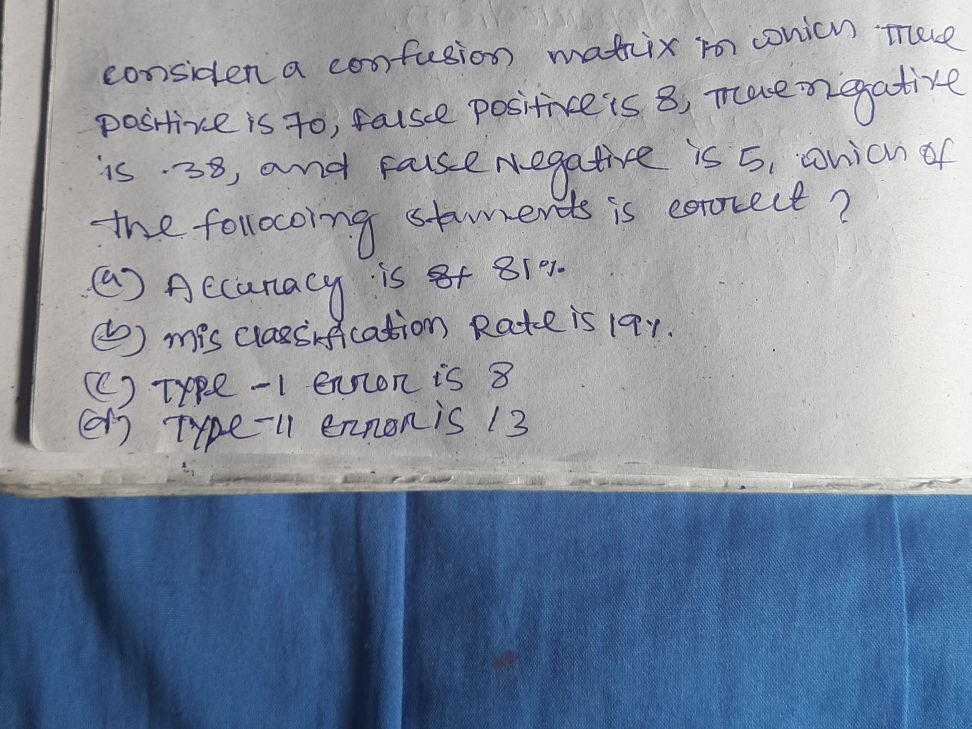 consider a confusion matrix in which True
positive is 70, false positive is 8, True negative
is 38, and false Negative is 5, which of
the following stamnents is correct ?
(a) Accuracy is 81%
(b) mis classification Rate is 19%.
(c) TYPE -1 error is 8
(d) TYPE-11 error is 13